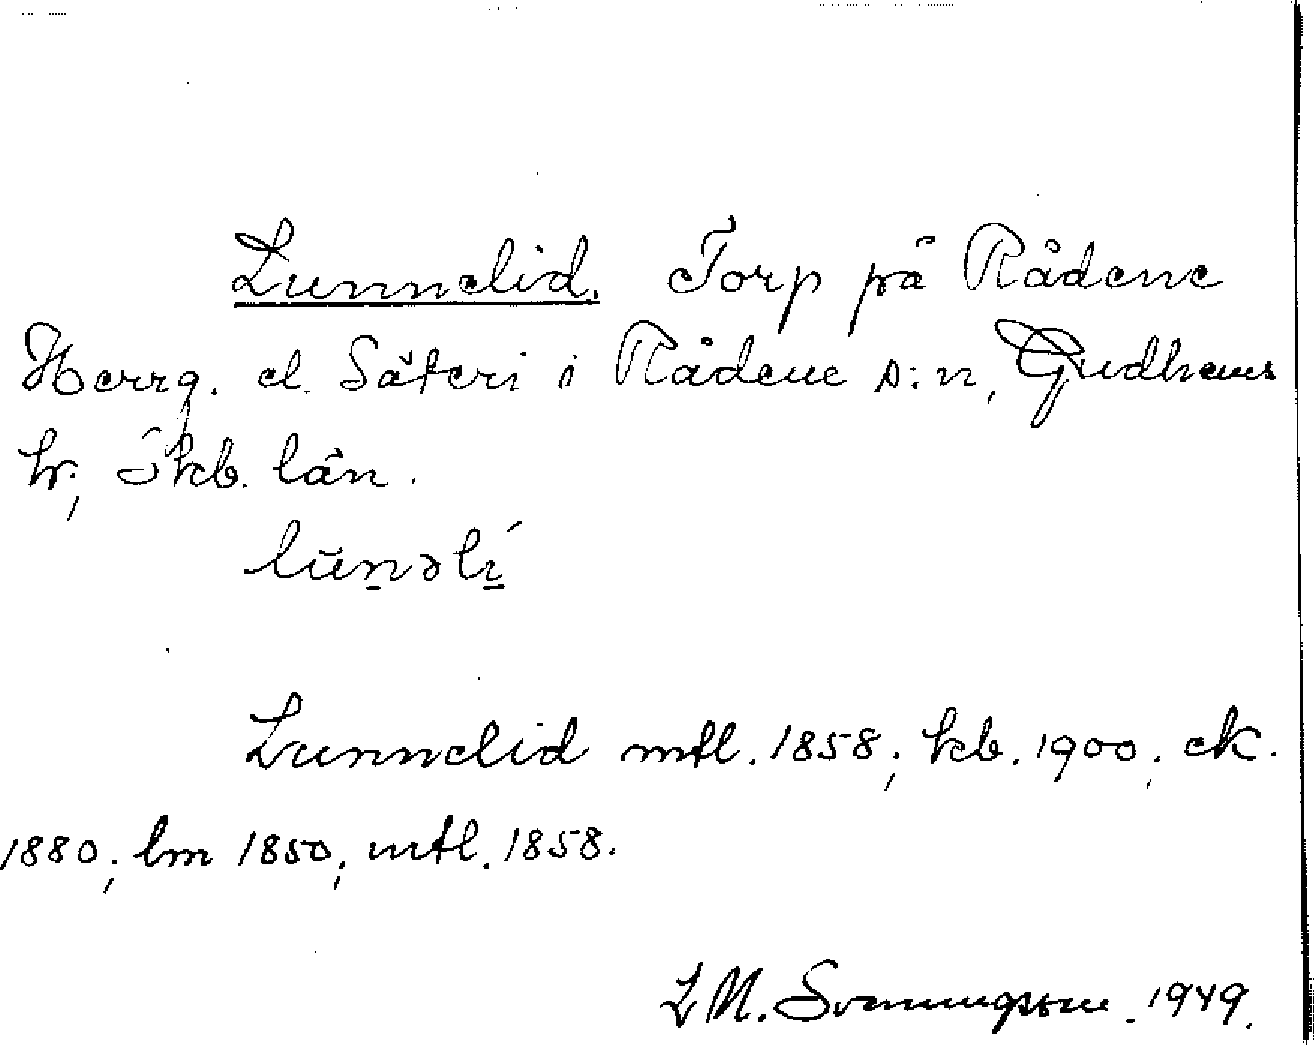 Lunnelid. Torp på Rådene
Herrg. el. Säteri i Rådene s:n, Gudhems
hr, Skb. län.
lūn̠əlí̠
Lunnelid mtl. 1858; kb. 1900; ek.
1880; lm 1850; mtl. 1858.
L M. Svenungsson. 1949.